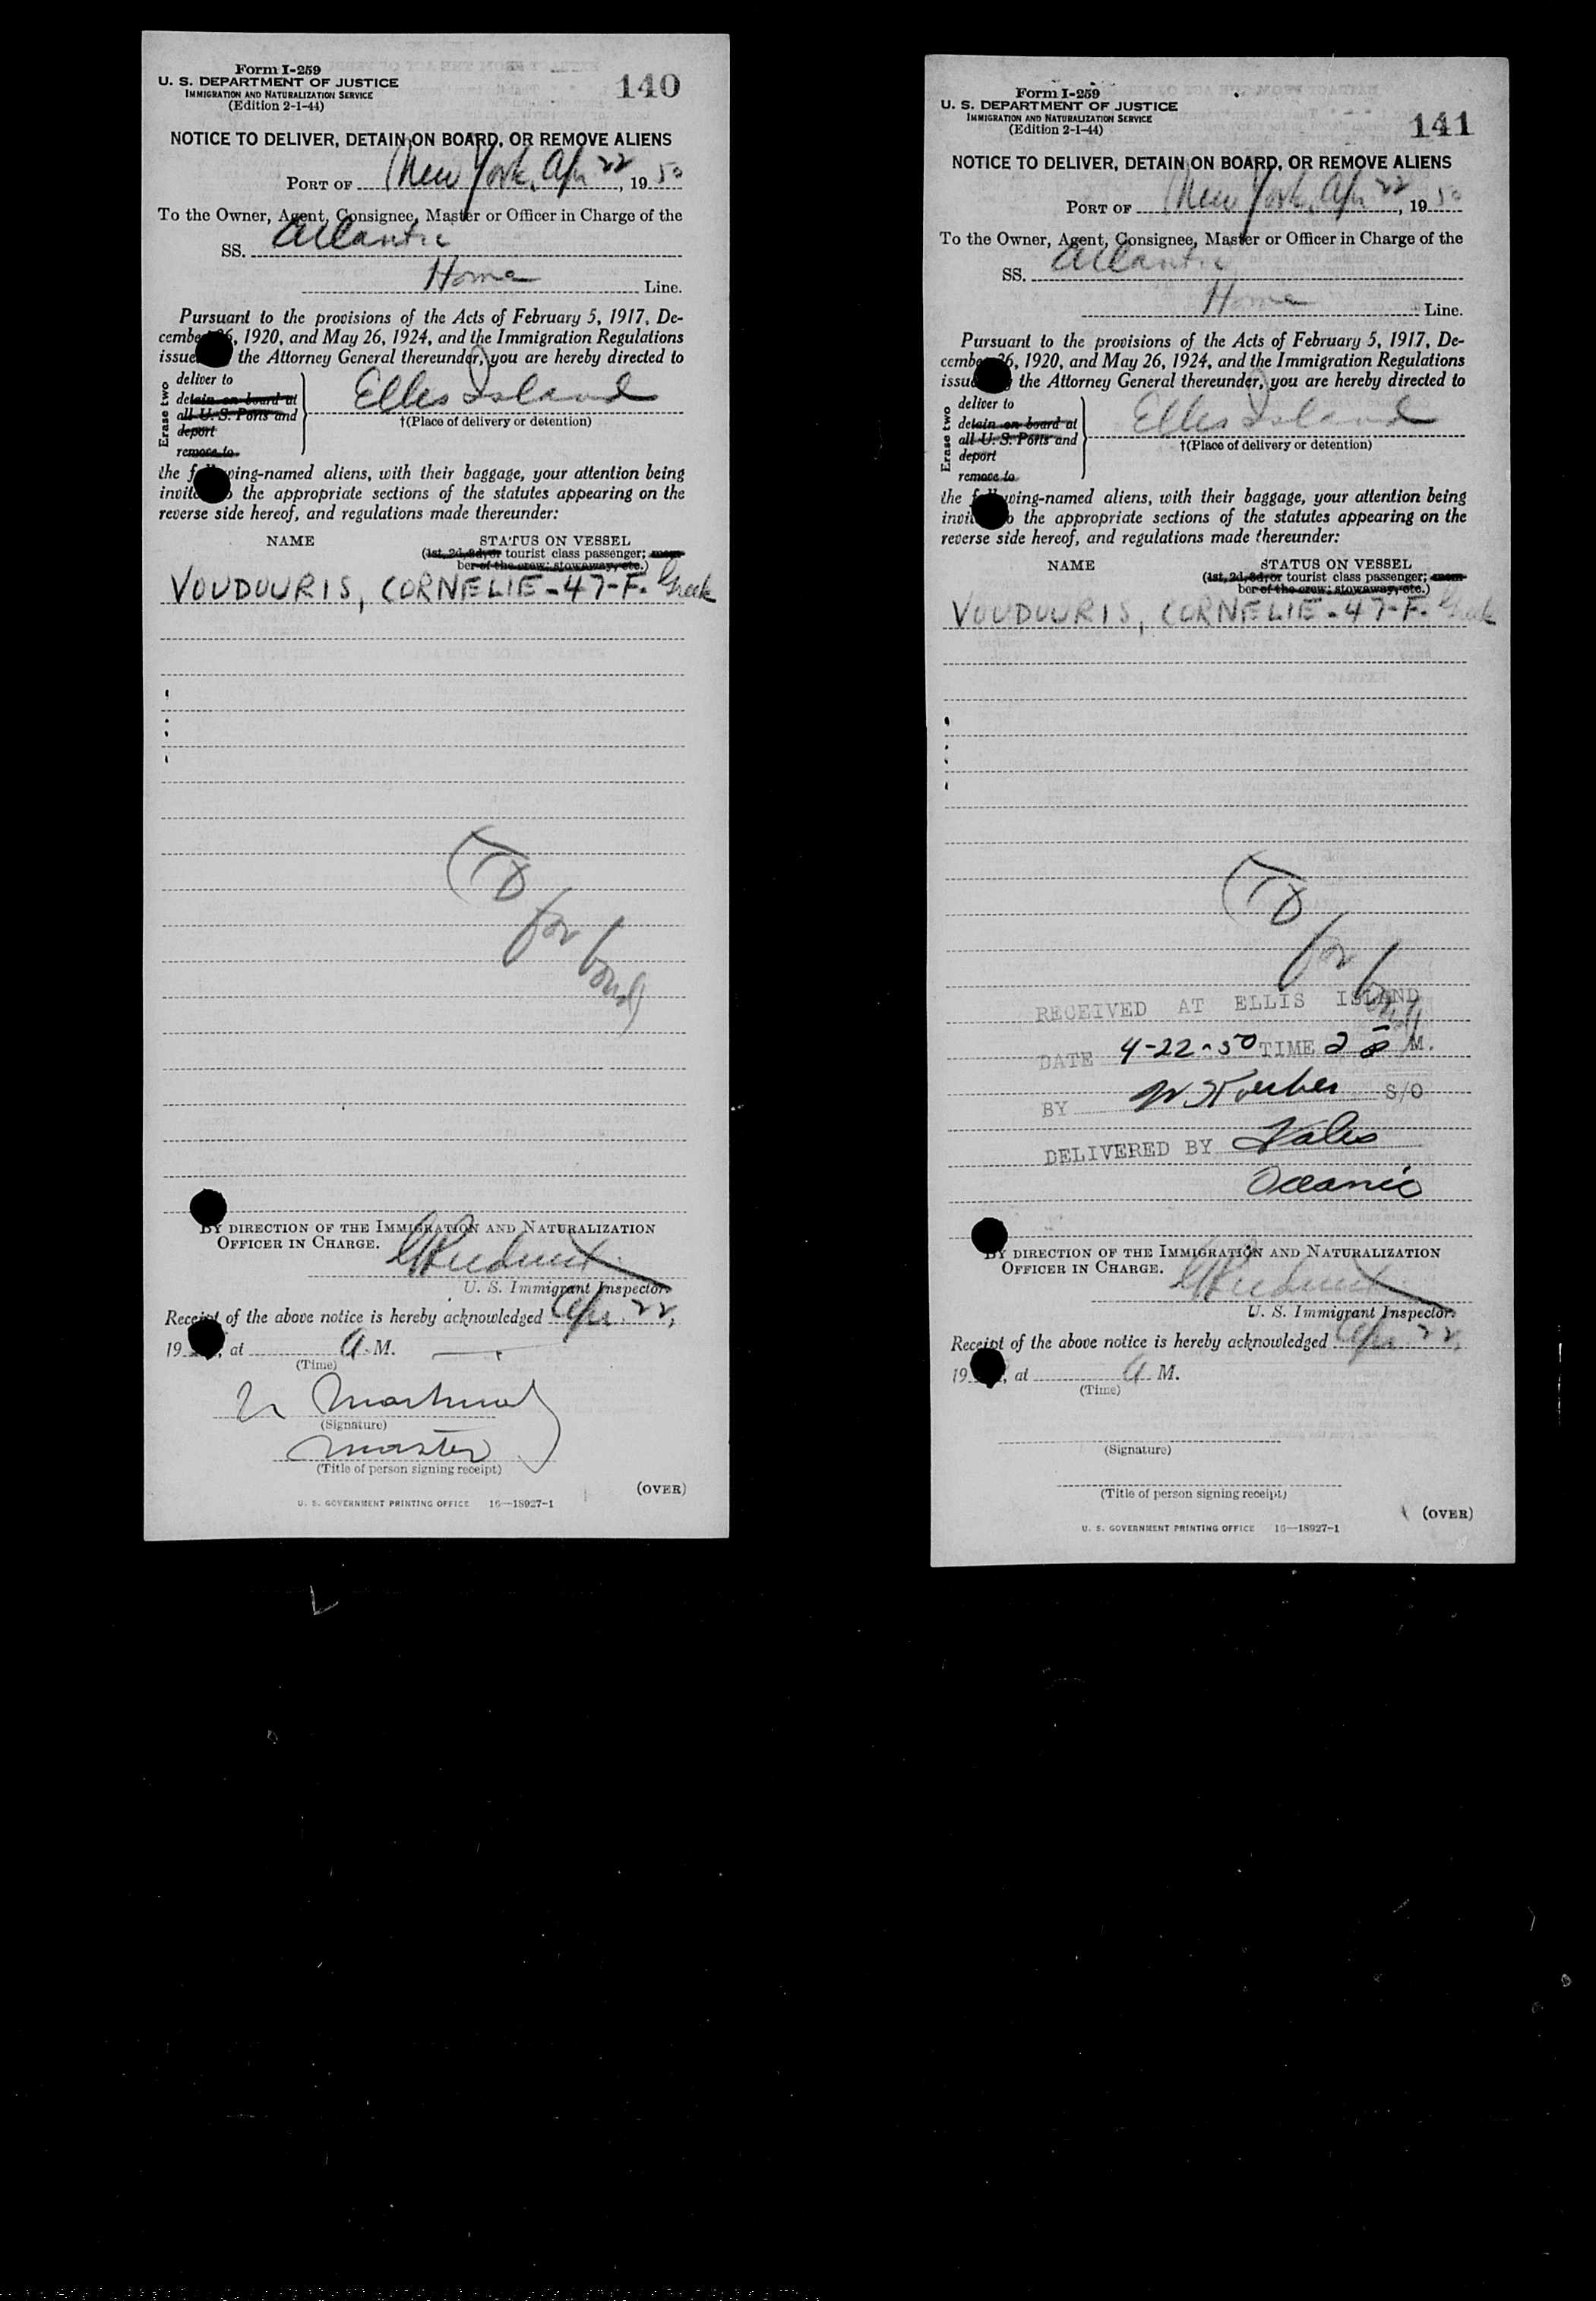 Form I-259
U. S. DEPARTMENT OF JUSTICE
IMMIGRATION AND NATURALIZATION SERVICE
(Edition 2-1-44)
140
NOTICE TO DELIVER, DETAIN ON BOARD, OR REMOVE ALIENS
PORT OF New York, Apr 22, 1950
To the Owner, Agent, Consignee, Master or Officer in Charge of the
SS. Atlantic
Home Line.
Pursuant to the provisions of the Acts of February 5, 1917, De-
cember 26, 1920, and May 26, 1924, and the Immigration Regulations
issued the Attorney General thereunder, you are hereby directed to
Erase two
deliver to
detain on board at
all U. S. Ports and
deport
remove to
Ellis Island
†(Place of delivery or detention)
the following-named aliens, with their baggage, your attention being
invited the appropriate sections of the statutes appearing on the
reverse side hereof, and regulations made thereunder:
NAME STATUS ON VESSEL
(1st, 2d, 3d, or tourist class passenger; mem-
ber of the crew; stowaway, etc.)
VOUDOURIS, CORNELIE - 47 - F. Greek
for bond
BY DIRECTION OF THE IMMIGRATION AND NATURALIZATION
OFFICER IN CHARGE.
U. S. Immigrant Inspector.
Receipt of the above notice is hereby acknowledged Apr. 22,
19 , at A. M.
(Time)
(Signature)
Master
(Title of person signing receipt)
(OVER)
U. S. GOVERNMENT PRINTING OFFICE 16—18927-1
Form I-259
U. S. DEPARTMENT OF JUSTICE
IMMIGRATION AND NATURALIZATION SERVICE
(Edition 2-1-44)
141
NOTICE TO DELIVER, DETAIN ON BOARD, OR REMOVE ALIENS
PORT OF New York, Apr 22, 1950
To the Owner, Agent, Consignee, Master or Officer in Charge of the
SS. Atlantic
Home Line.
Pursuant to the provisions of the Acts of February 5, 1917, De-
cember 26, 1920, and May 26, 1924, and the Immigration Regulations
issued the Attorney General thereunder, you are hereby directed to
Erase two
deliver to
detain on board at
all U. S. Ports and
deport
remove to
Ellis Island
†(Place of delivery or detention)
the following-named aliens, with their baggage, your attention being
invited the appropriate sections of the statutes appearing on the
reverse side hereof, and regulations made thereunder:
NAME STATUS ON VESSEL
(1st, 2d, 3d, or tourist class passenger; mem-
ber of the crew; stowaway, etc.)
VOUDOURIS, CORNELIE - 47 - F. Greek
for bond
RECEIVED AT ELLIS ISLAND
DATE 4-22-50 TIME M.
BY S/O
DELIVERED BY
Oceanic
BY DIRECTION OF THE IMMIGRATION AND NATURALIZATION
OFFICER IN CHARGE.
U. S. Immigrant Inspector.
Receipt of the above notice is hereby acknowledged Apr 22,
19 , at A. M.
(Time)
(Signature)
(Title of person signing receipt)
(OVER)
U. S. GOVERNMENT PRINTING OFFICE 16—18927-1